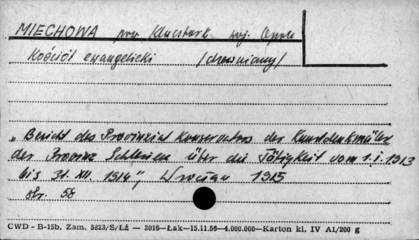 MIECHOWA pow. Kluczbork woj. Opole
Kościół ewangelicki /drewniany/
"Bericht des Provinzial Konservators der Kunstdenkmäler
der Provinz Schlesien über die Tätigkeit vom 1.I.1913
bis 31.XII.1914", Wrocław 1915
str. 58
CWD - B-15b. Zam. 5823/S/Łż — 3016—Łak—15.11.56—4.000.000—Karton kl. IV A1/200 g